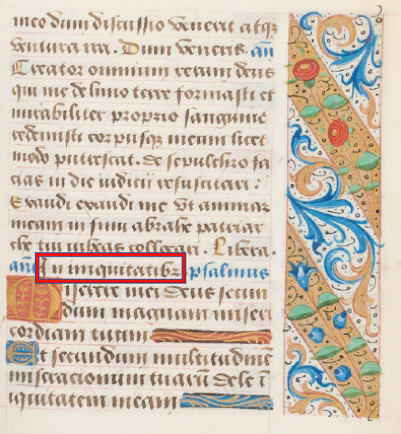 meo dum discussio venerit atq
ventura ira. Dum veneris. añ
Creator omnium rerum deus
qui me de limo terre formasti et
mirabiliter proprio sanguine
redemisti corpusq meum licet
modo putrescat. de sepulchro fa
cias in die iudicii resuscitari:
Exaudi exaudi me vt animam
meam in sinu abrahe patriar
che tui iubeas collocari. Libera.
añ In iniquitatibꝫ psalmus
Miserere mei deus secun
dum magnam miseri
cordiam tuam
Et secundum multitudine
miseracionum tuarũ dele ĩ
iquitatem meam